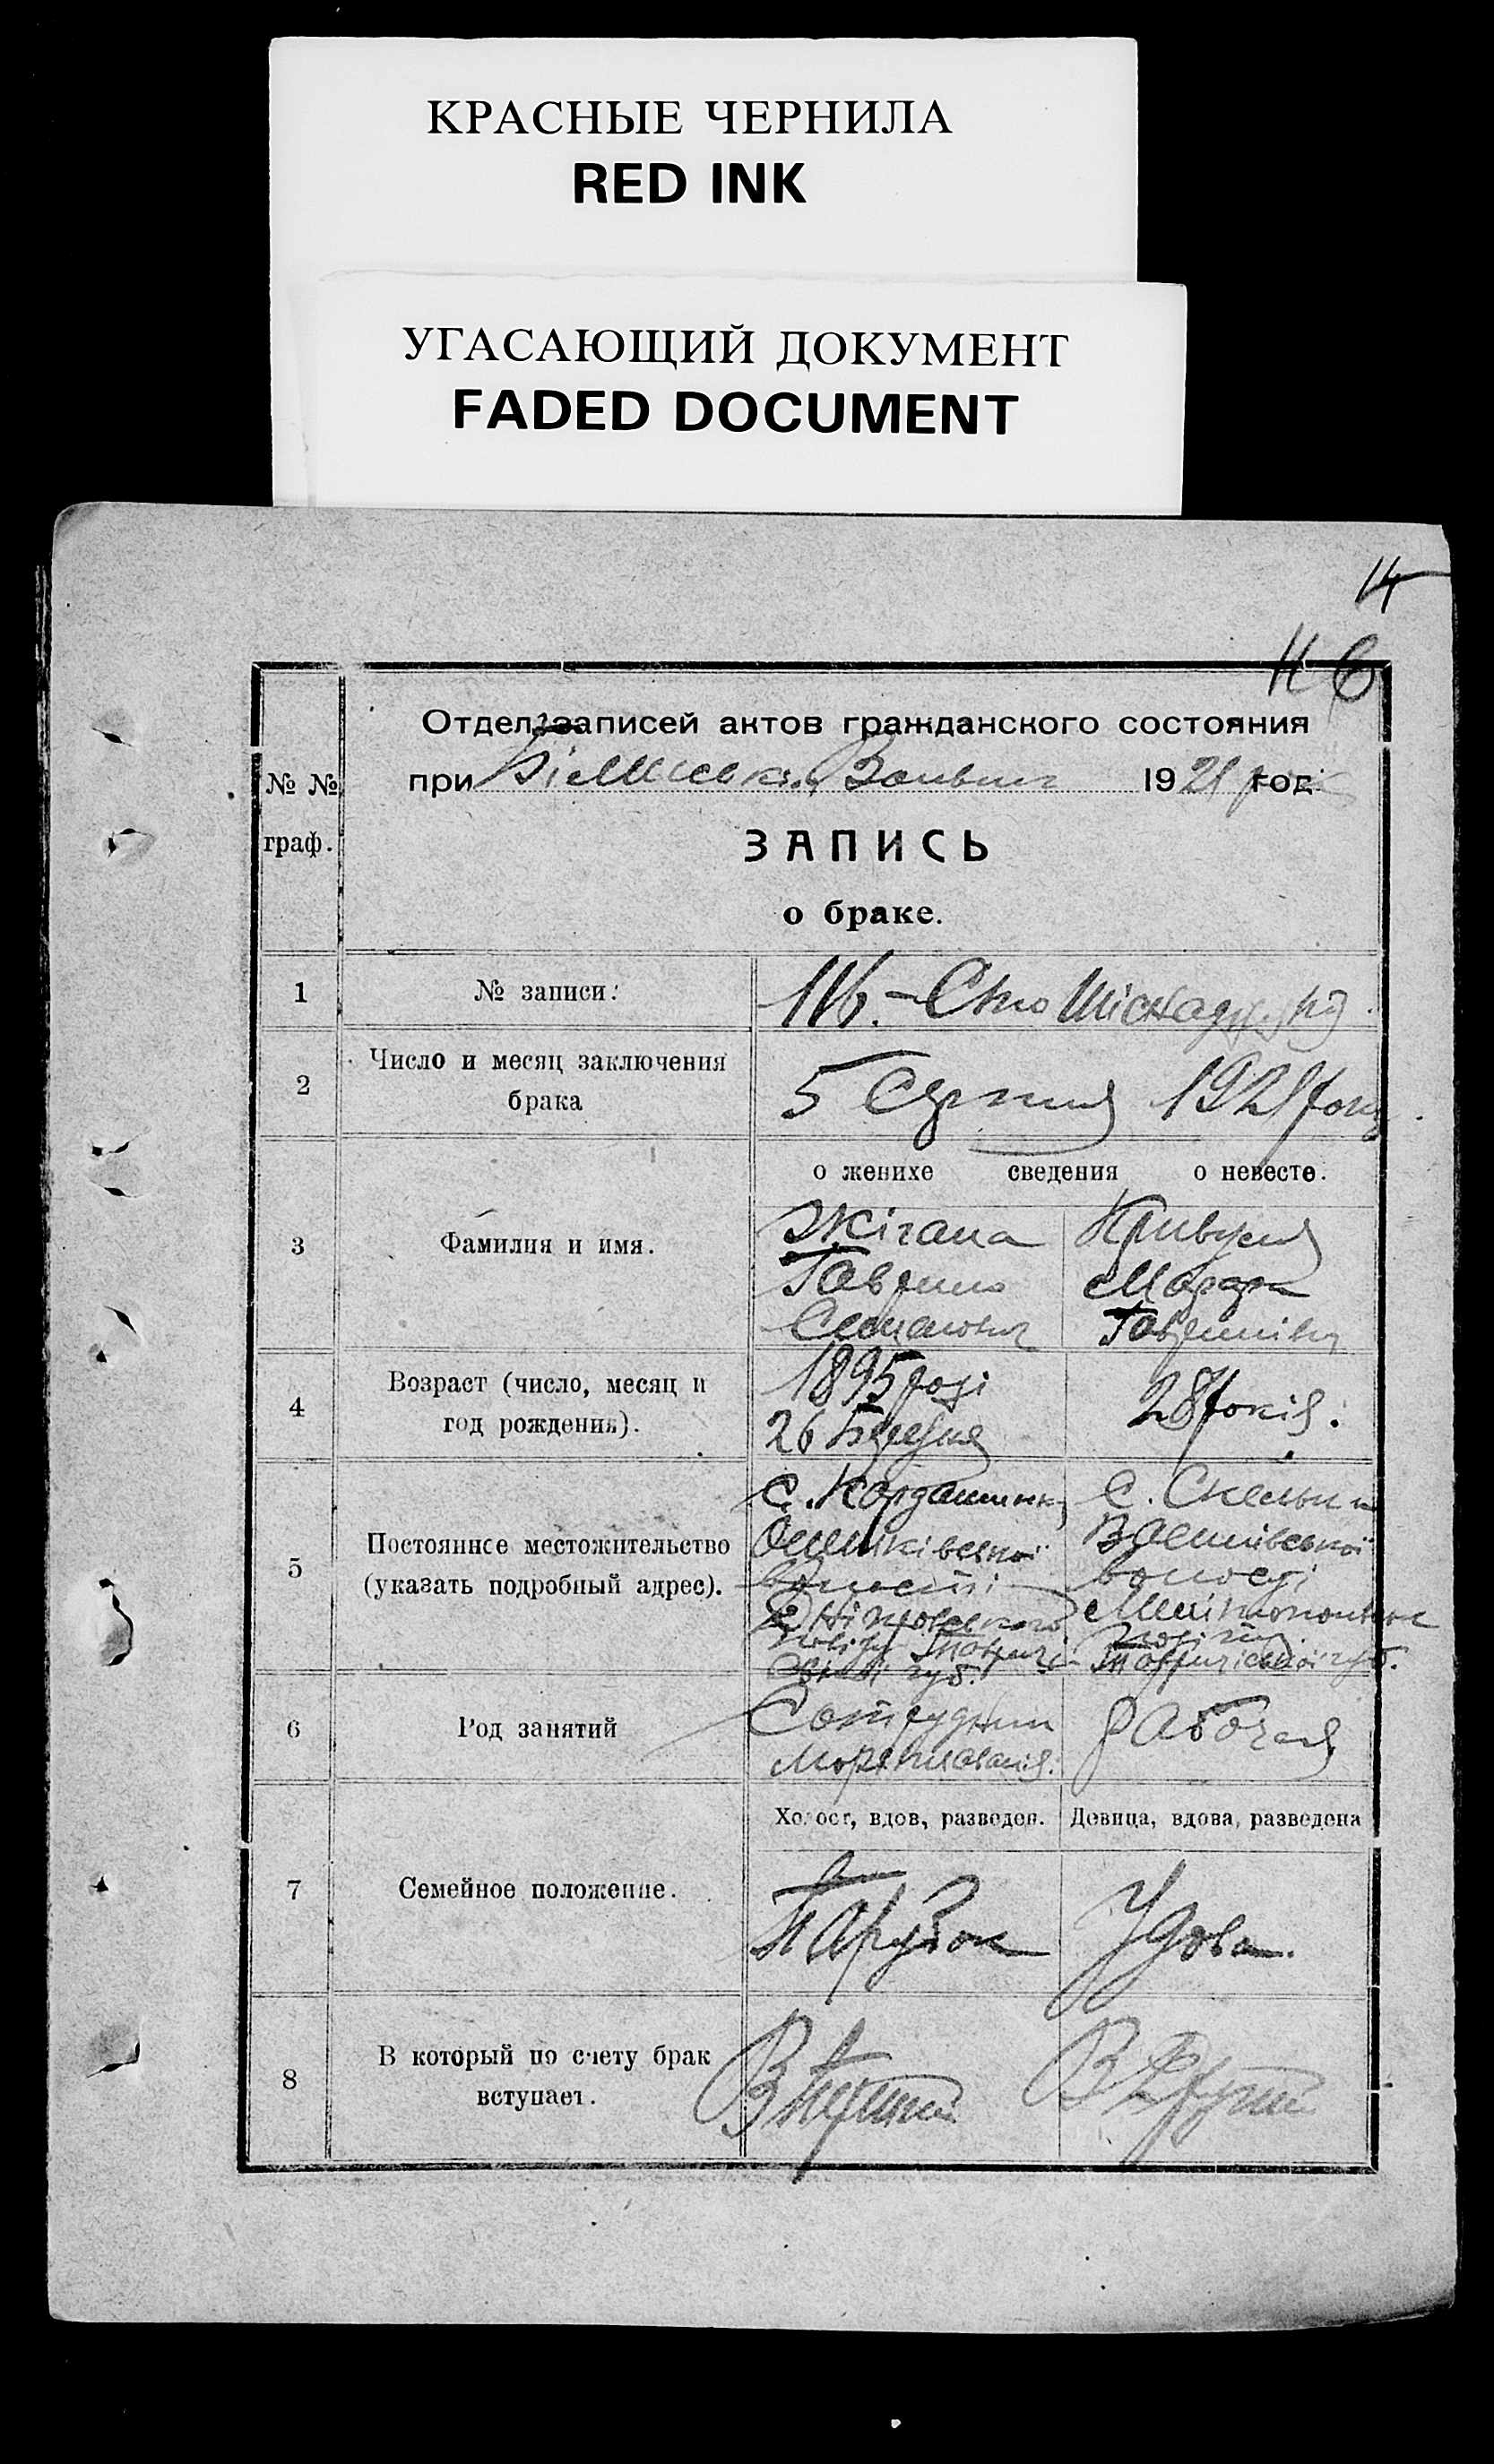 КРАСНЫЕ ЧЕРНИЛА
RED INK
УГАСАЮЩИЙ ДОКУМЕНТ
FADED DOCUMENT
14
116
№ №
граф.
Отдел записей актов гражданского состояния
при 1921 год
ЗАПИСЬ
о браке.
1
№ записи:
116. – Сто
2
Число и месяц заключения
брака
5 Серпня 1921 року
о женихе сведения о невесте.
3
Фамилия и имя.
Жігана
Гаврило
Семенович
Кривуля
4
Возраст (число, месяц и
год рождения).
1895 році
26 Березня
28 років.
5
Постоянное местожительство
(указать подробный адрес).
с.
Олешківської
волості
Дніпровського
повіту Таврич
губ.
с. Скельки
Василівської
волості
Мелітопольськ
повіту
Тавричеської губ.
6
Род занятий
Сотрудник
рабочая
7
Семейное положение.
Холост, вдов, разведен.
Девица, вдова, разведена
Парубок
Удова.
8
В который по счету брак
вступает.
В перший
В другий